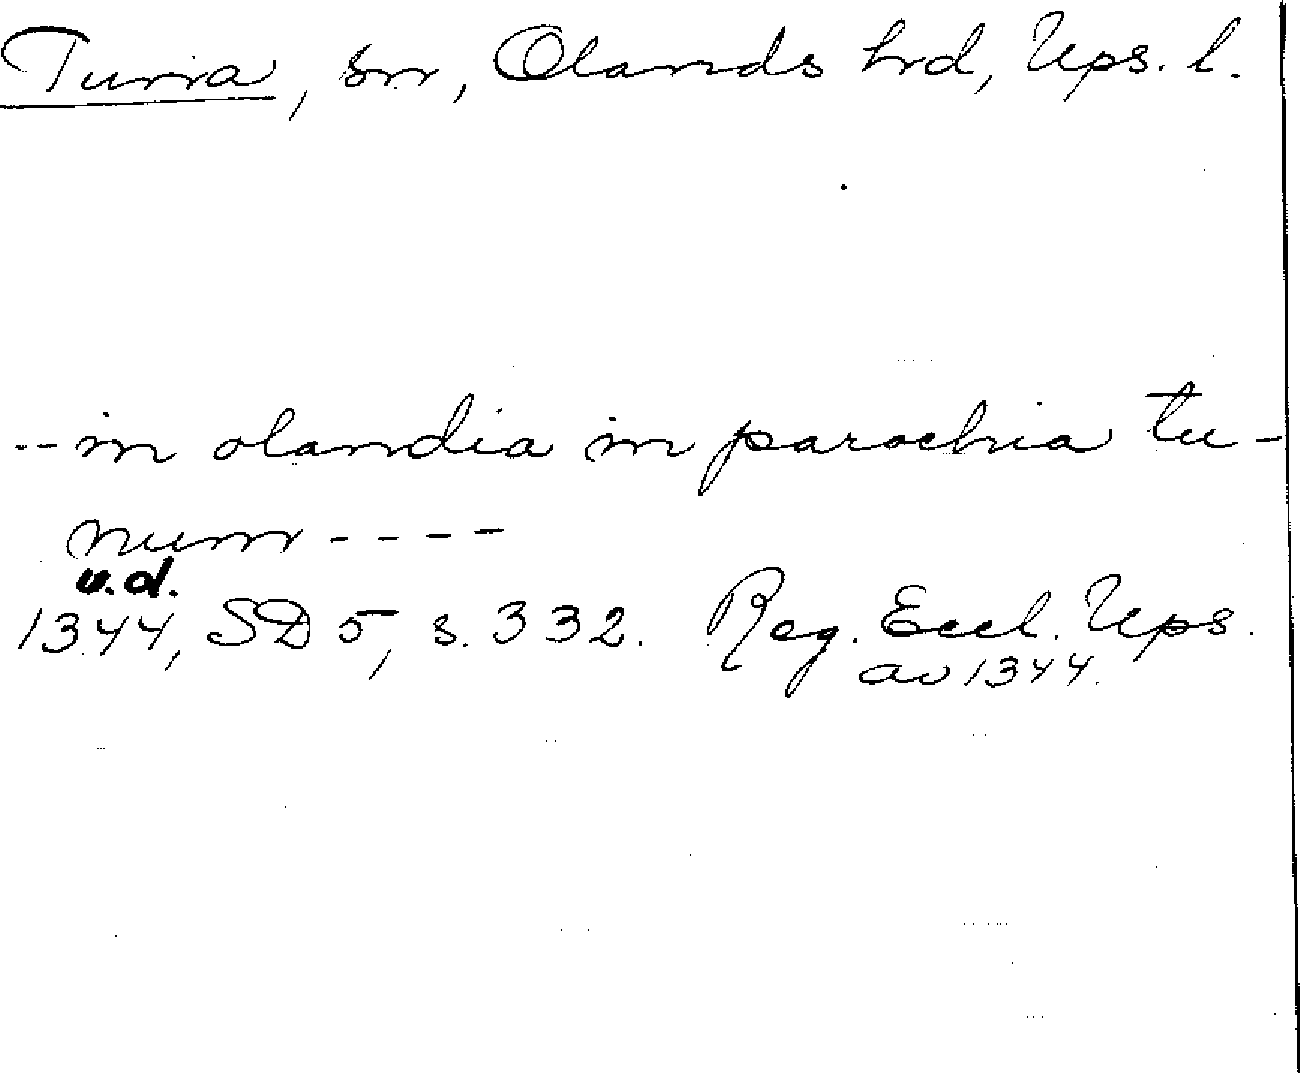 Tuna, sn, Olands hrd, Ups. l.
-- in olandia in parochia tu-
num ----
u.d.
1344, SD 5, s. 332. Reg. Eccl. Ups.
av 1344.